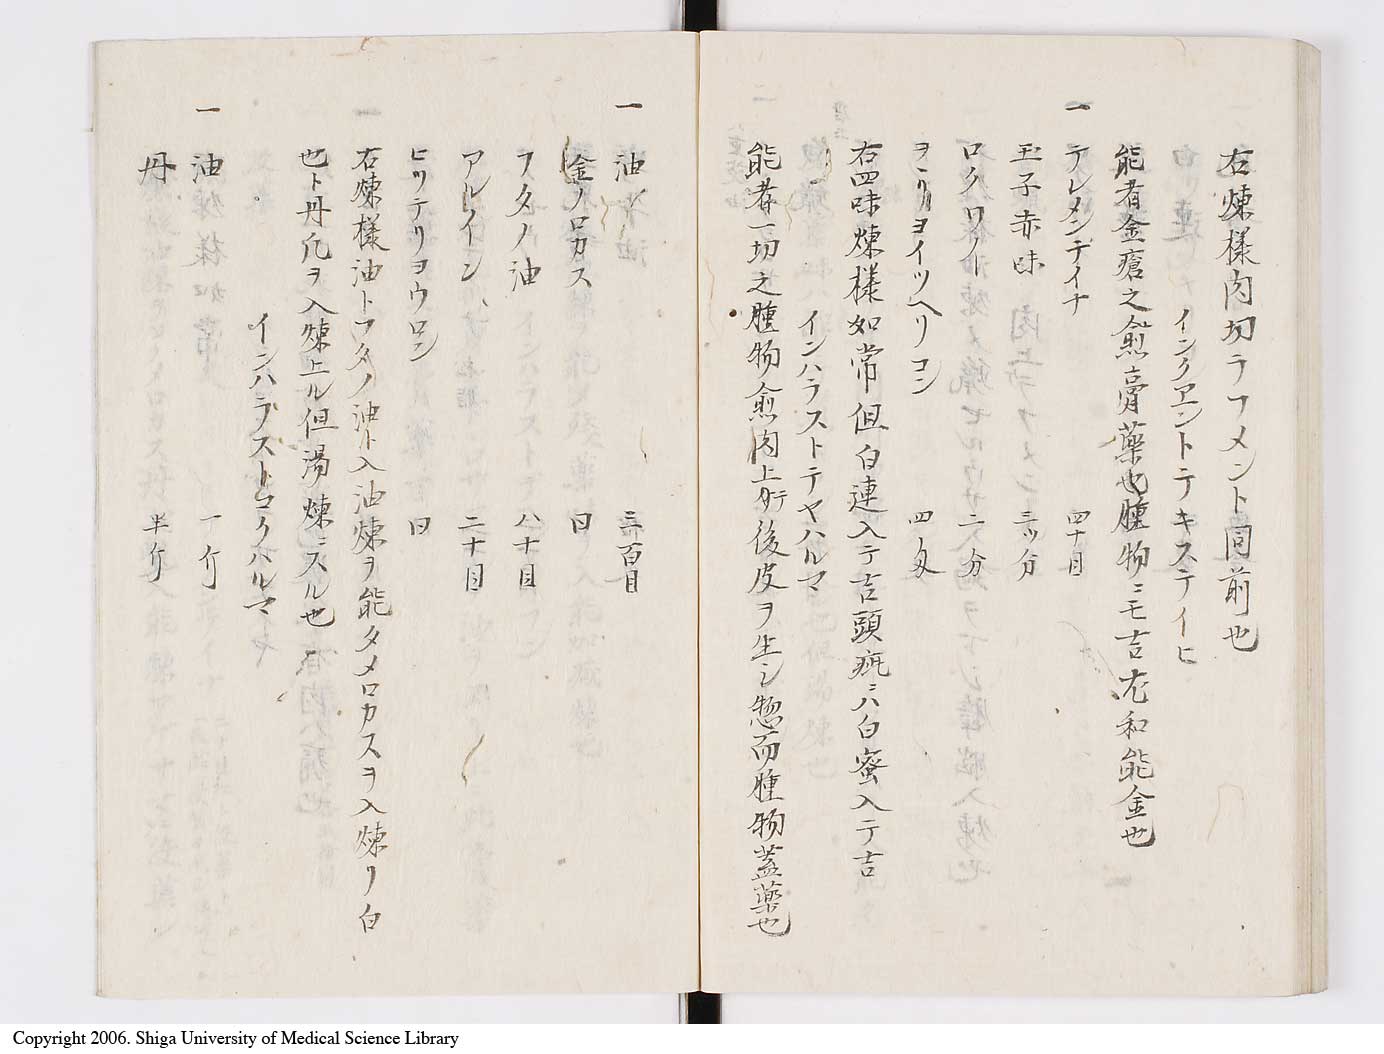 右煉様肉切テフメント同前也
インクヱントテキステイヒ
能者金瘡之愈膏薬也腫物ニモ吉尤和能金也
一 テレメンテイナ 四十目
玉子赤味 三ツ分
ロクロノ 二分
ヲヽリヨイツヘリコン 四匁
右四味煉様如常但白連入テ吉頭瘡ニハ白蜜入テ吉
インハラストテヤハルマ
能者一切之腫物愈肉上ケテ後皮ヲ生シ惣而腫物蓋薬也
一 油 三百目
金ノロカス 同
フタノ油 八十目
アルイン 二十目
ヒリテリヨウロン 同
右煉様油トフタノ油ト入油煉ヲ能タメロカスヲ入煉リ白
也ト丹凡ヲ入煉上ル但湯煉ニスル也
インハラストロクハルマ
一 油 一斤
丹 半斤
Copyright 2006. Shiga University of Medical Science Library